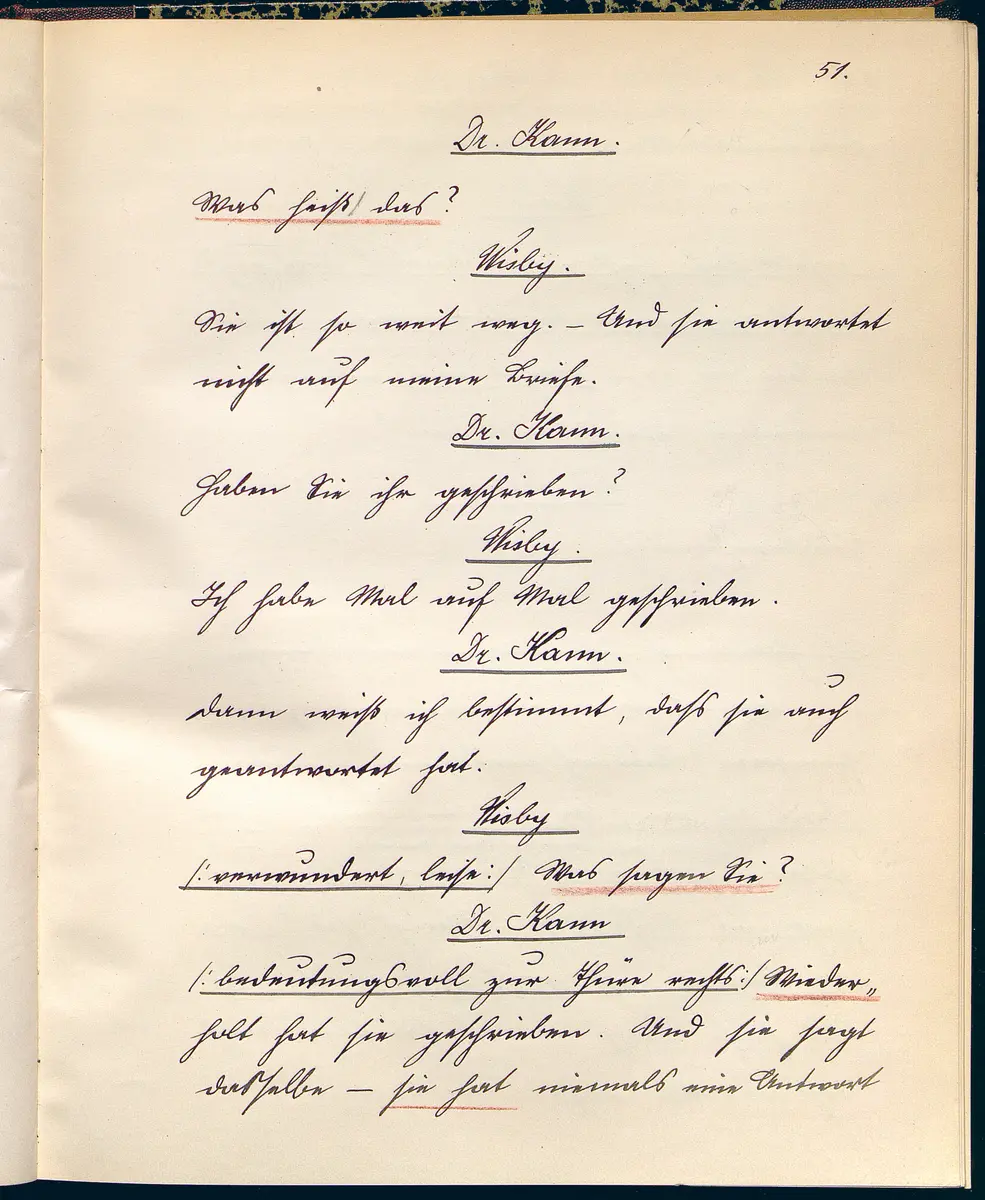 51.
Dr. Kann.
Was heißt das?
Wisby.
Sie ist so weit weg. – Und sie antwortet
nicht auf meine Briefe.
Dr. Kann.
Haben Sie ihr geschrieben?
Wisby.
Ich habe Mal auf Mal geschrieben.
Dr. Kann.
Dann weiß ich bestimmt, dass sie auch
geantwortet hat.
Wisby
/: verwundert, leise :/ Was sagen Sie?
Dr. Kann
/: bedeutungsvoll zur Thüre rechts :/ Wieder„
holt hat sie geschrieben. Und sie sagt
dasselbe – sie hat niemals eine Antwort